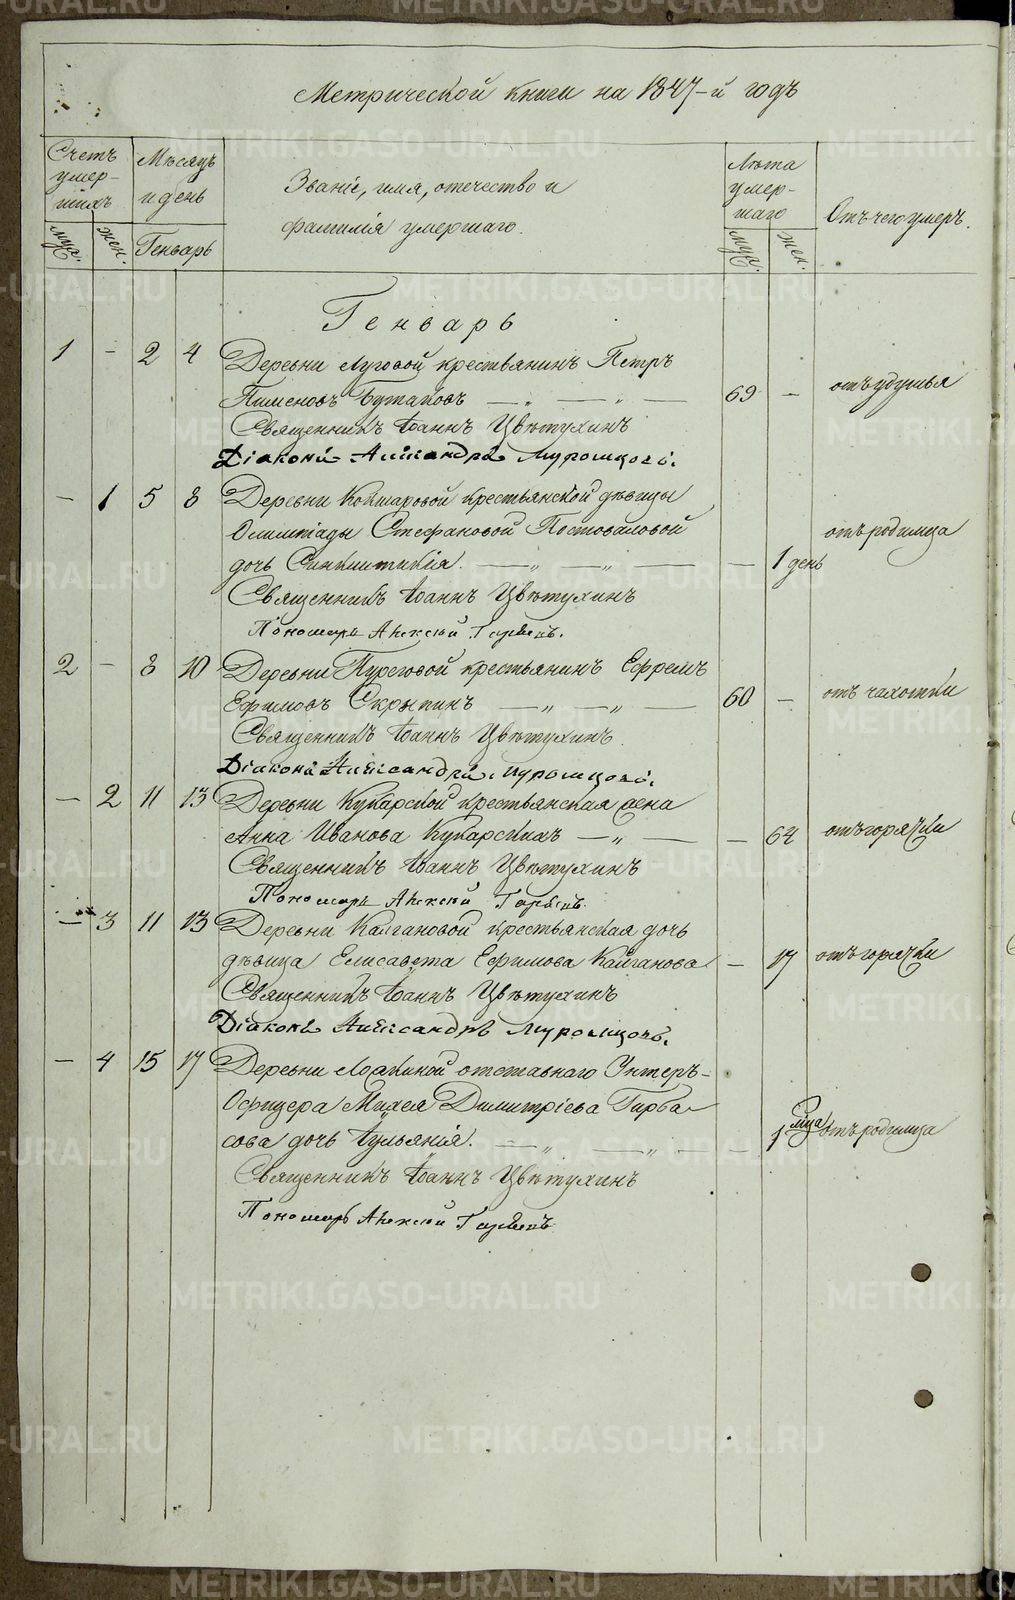 Метрической книги на 1847-й годъ
Счетъ умер-шихъ
Мѣсяцъ и день
Званіе, имя, отечество и фамилія умершаго.
Лѣта умер-шаго
Отъ чего умеръ.
муж. жен. Генварь муж. жен.
Генварь
1 - 2 4 Деревни Луговой крестьянинъ Петръ
Пименовъ Бутаковъ — „ — „ — 69 - отъ удушья
Священникъ Іоаннъ Цвѣтухинъ
Діаконъ Александръ Муромцовъ.
- 1 5 8 Деревни Кокшаровой крестьянской дѣвицы
Олимпіады Стефановой Постоваловой отъ родимца
дочь Синклитикія. — „ — „ — - 1 день
Священникъ Іоаннъ Цвѣтухинъ
Пономарь Алексѣй
2 - 8 10 Деревни крестьянинъ Ефремъ
Ефимовъ Скрыпинъ — „ — „ — 60 - отъ чахотки
Священникъ Іоаннъ Цвѣтухинъ.
Діаконъ Александръ Муромцовъ.
- 2 11 13 Деревни Кукарской крестьянская жена
Анна Иванова Кукарскихъ — „ — - 64 отъ горячки
Священникъ Іоаннъ Цвѣтухинъ
Пономарь Алексѣй
- 3 11 13 Деревни Калгановой крестьянская дочь
дѣвица Елисавета Ефимова Калганова - 17 отъ горячки
Священникъ Іоаннъ Цвѣтухинъ
Діаконъ Александръ Муромцовъ.
- 4 15 17 Деревни отставнаго Унтеръ-
Офицера Димитріева Гирба-
сова дочь Іульянія. — „ — „ — - 1 мѣца отъ родимца
Священникъ Іоаннъ Цвѣтухинъ
Пономарь Алексѣй
METRIKI.GASO-URAL.RU